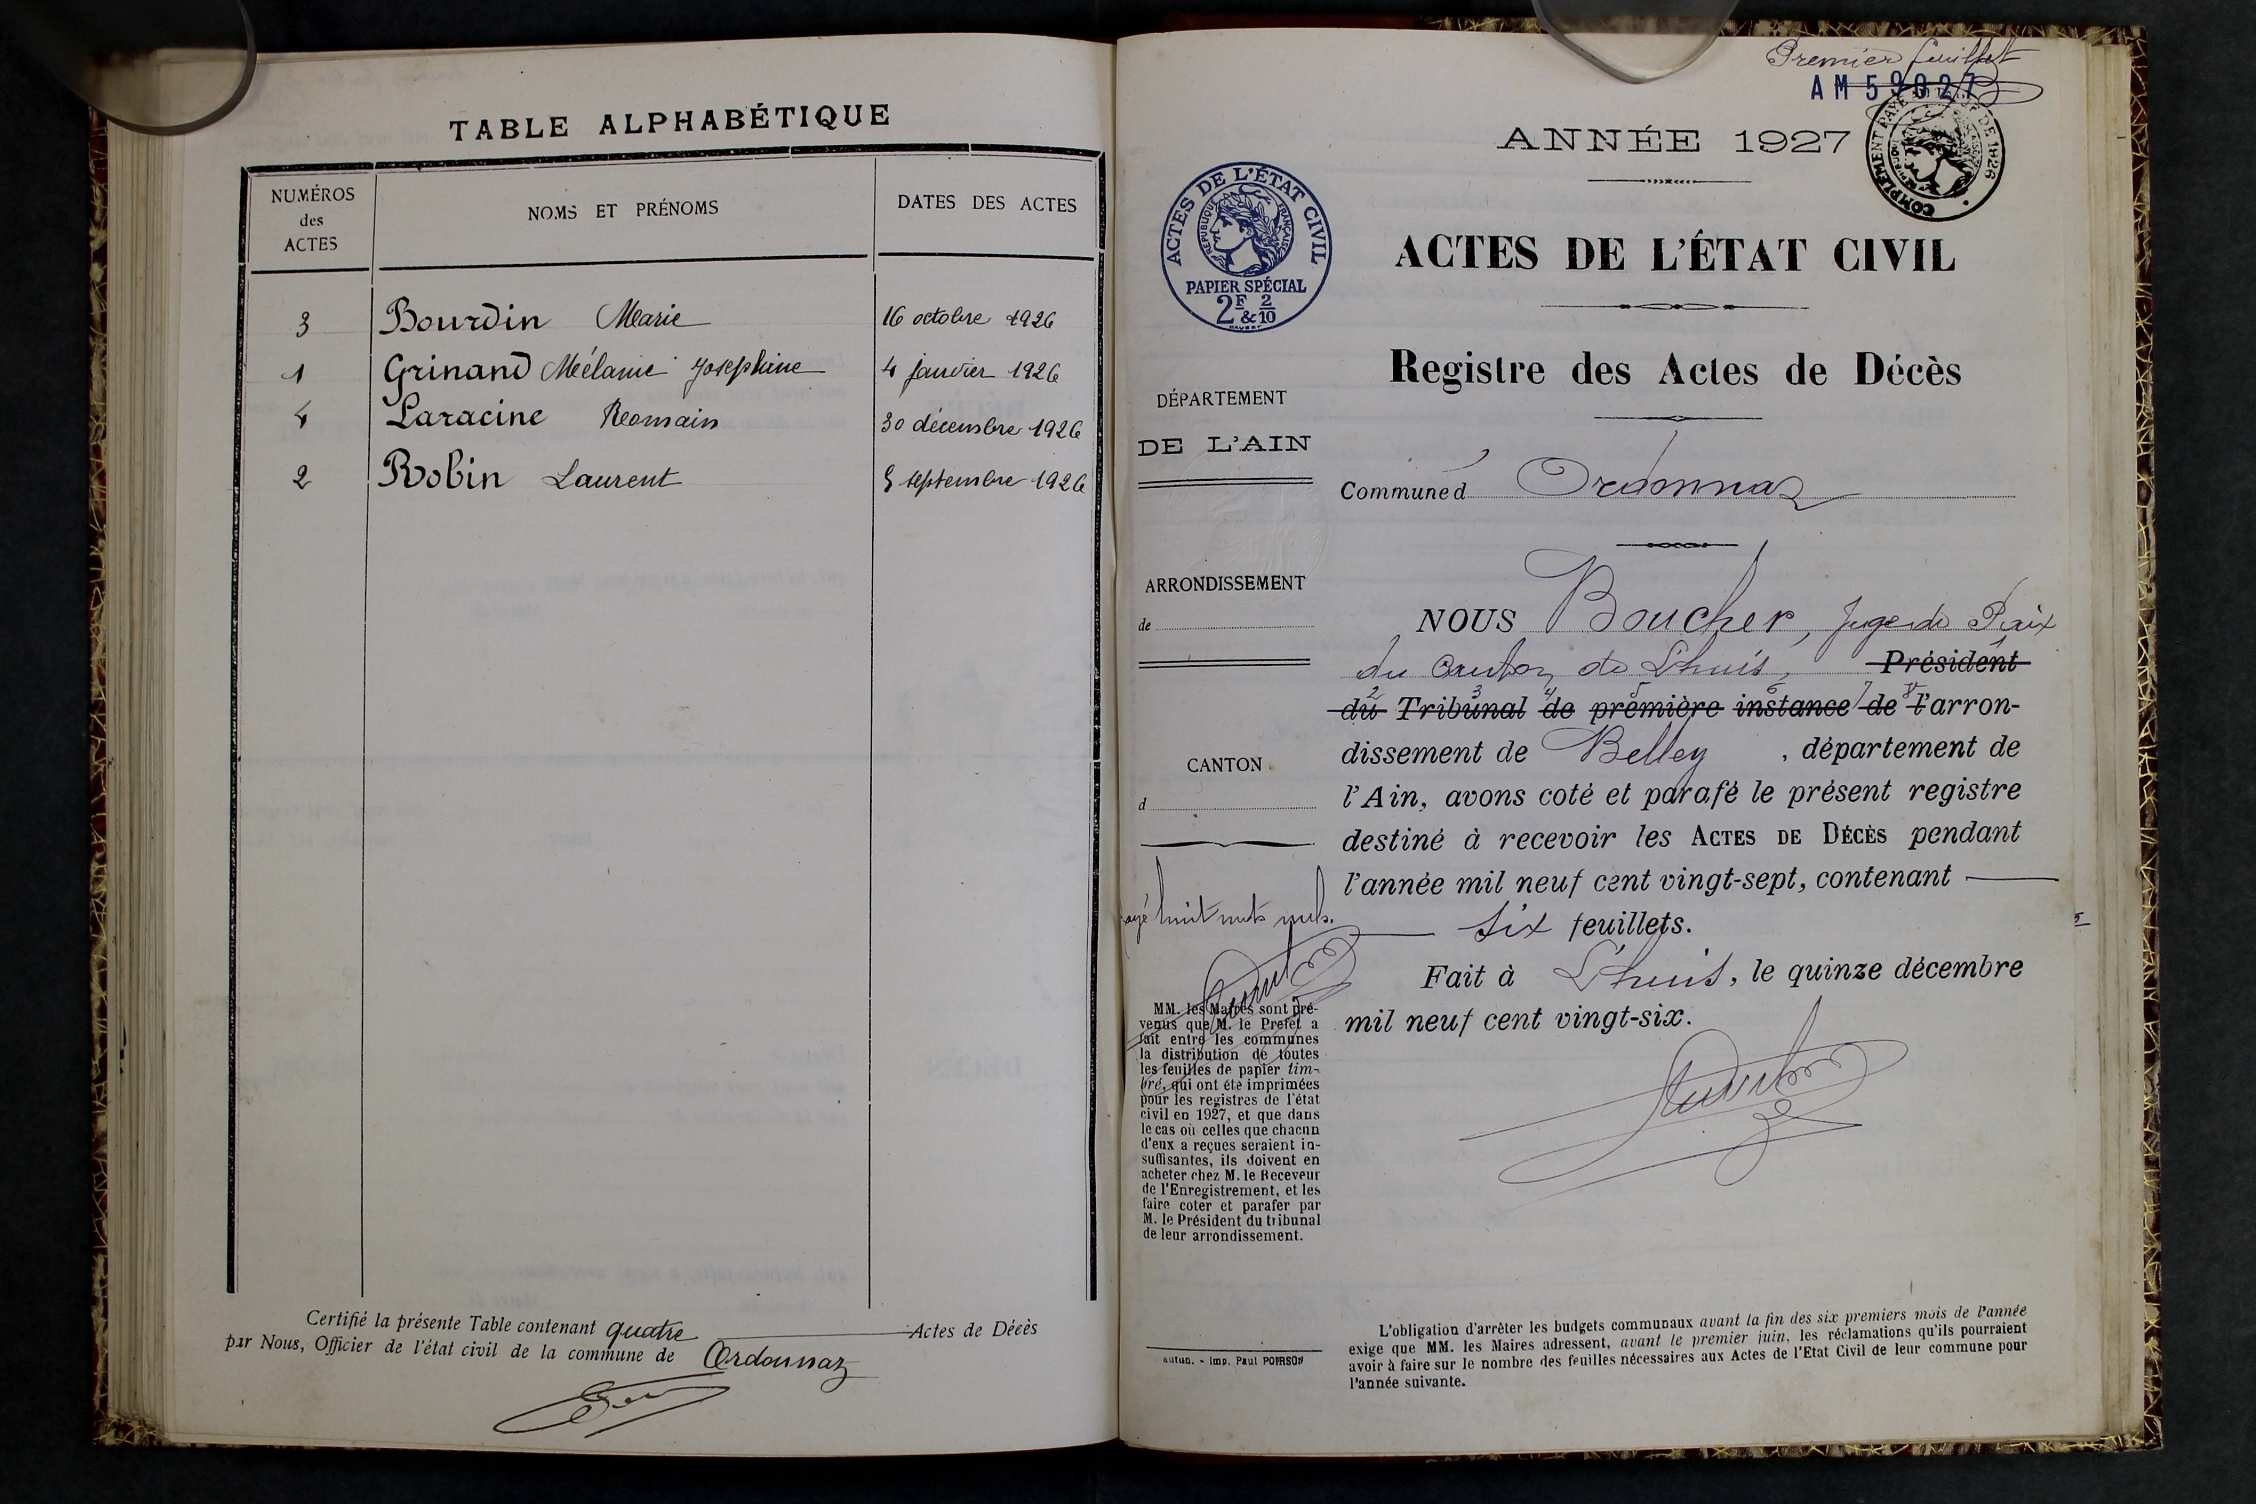 TABLE ALPHABÉTIQUE
NUMÉROS
des
ACTES
NOMS ET PRÉNOMS
DATES DES ACTES
3 Bourdin Marie 16 octobre 1926
1 Grinand Mélanie Joséphine 4 janvier 1926
4 Laracine Romain 30 décembre 1926
2 Robin Laurent 5 septembre 1926
Certifié la présente Table contenant quatre Actes de Décès
par Nous, Officier de l'état civil de la commune de Ordonnaz
Premier feuillet
AM 59027
ANNÉE 1927
COMPLÉMENT PAYÉ DE 1926
ACTES DE L'ÉTAT CIVIL
RÉPUBLIQUE FRANÇAISE
PAPIER SPÉCIAL
2F & 2/10
ACTES DE L'ÉTAT CIVIL
Registre des Actes de Décès
DÉPARTEMENT
DE L'AIN
Commune d Ordonnaz
ARRONDISSEMENT
de
CANTON
d
NOUS Boucher, Juge de Paix
du Canton de Lhuis, Président
du Tribunal de première instance de l'arron-
dissement de Belley, département de
l'Ain, avons coté et parafé le présent registre
destiné à recevoir les ACTES DE DÉCÈS pendant
l'année mil neuf cent vingt-sept, contenant
six feuillets.
Fait à Lhuis, le quinze décembre
mil neuf cent vingt-six.
rayé huit mots nuls.
MM. les Maires sont pré-
venus que M. le Préfet a
fait entre les communes
la distribution de toutes
les feuilles de papier tim-
bré, qui ont été imprimées
pour les registres de l'état
civil en 1927, et que dans
le cas où celles que chacun
d'eux a reçues seraient in-
suffisantes, ils doivent en
acheter chez M. le Receveur
de l'Enregistrement, et les
faire coter et parafer par
M. le Président du tribunal
de leur arrondissement.
autun. - Imp. Paul POIRSON
L'obligation d'arrêter les budgets communaux avant la fin des six premiers mois de l'année
exige que MM. les Maires adressent, avant le premier juin, les réclamations qu'ils pourraient
avoir à faire sur le nombre des feuilles nécessaires aux Actes de l'Etat Civil de leur commune pour
l'année suivante.